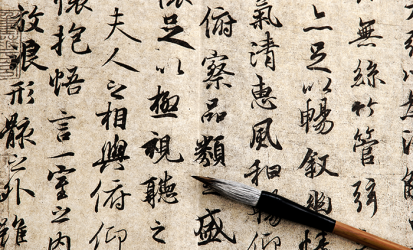 無絲竹管弦
足以暢敘幽情
氣清惠風和暢仰
俯察品類之盛
懷足以極視聽之
夫人之相與俯仰
懷抱悟言一室之內
放浪形骸之外雖